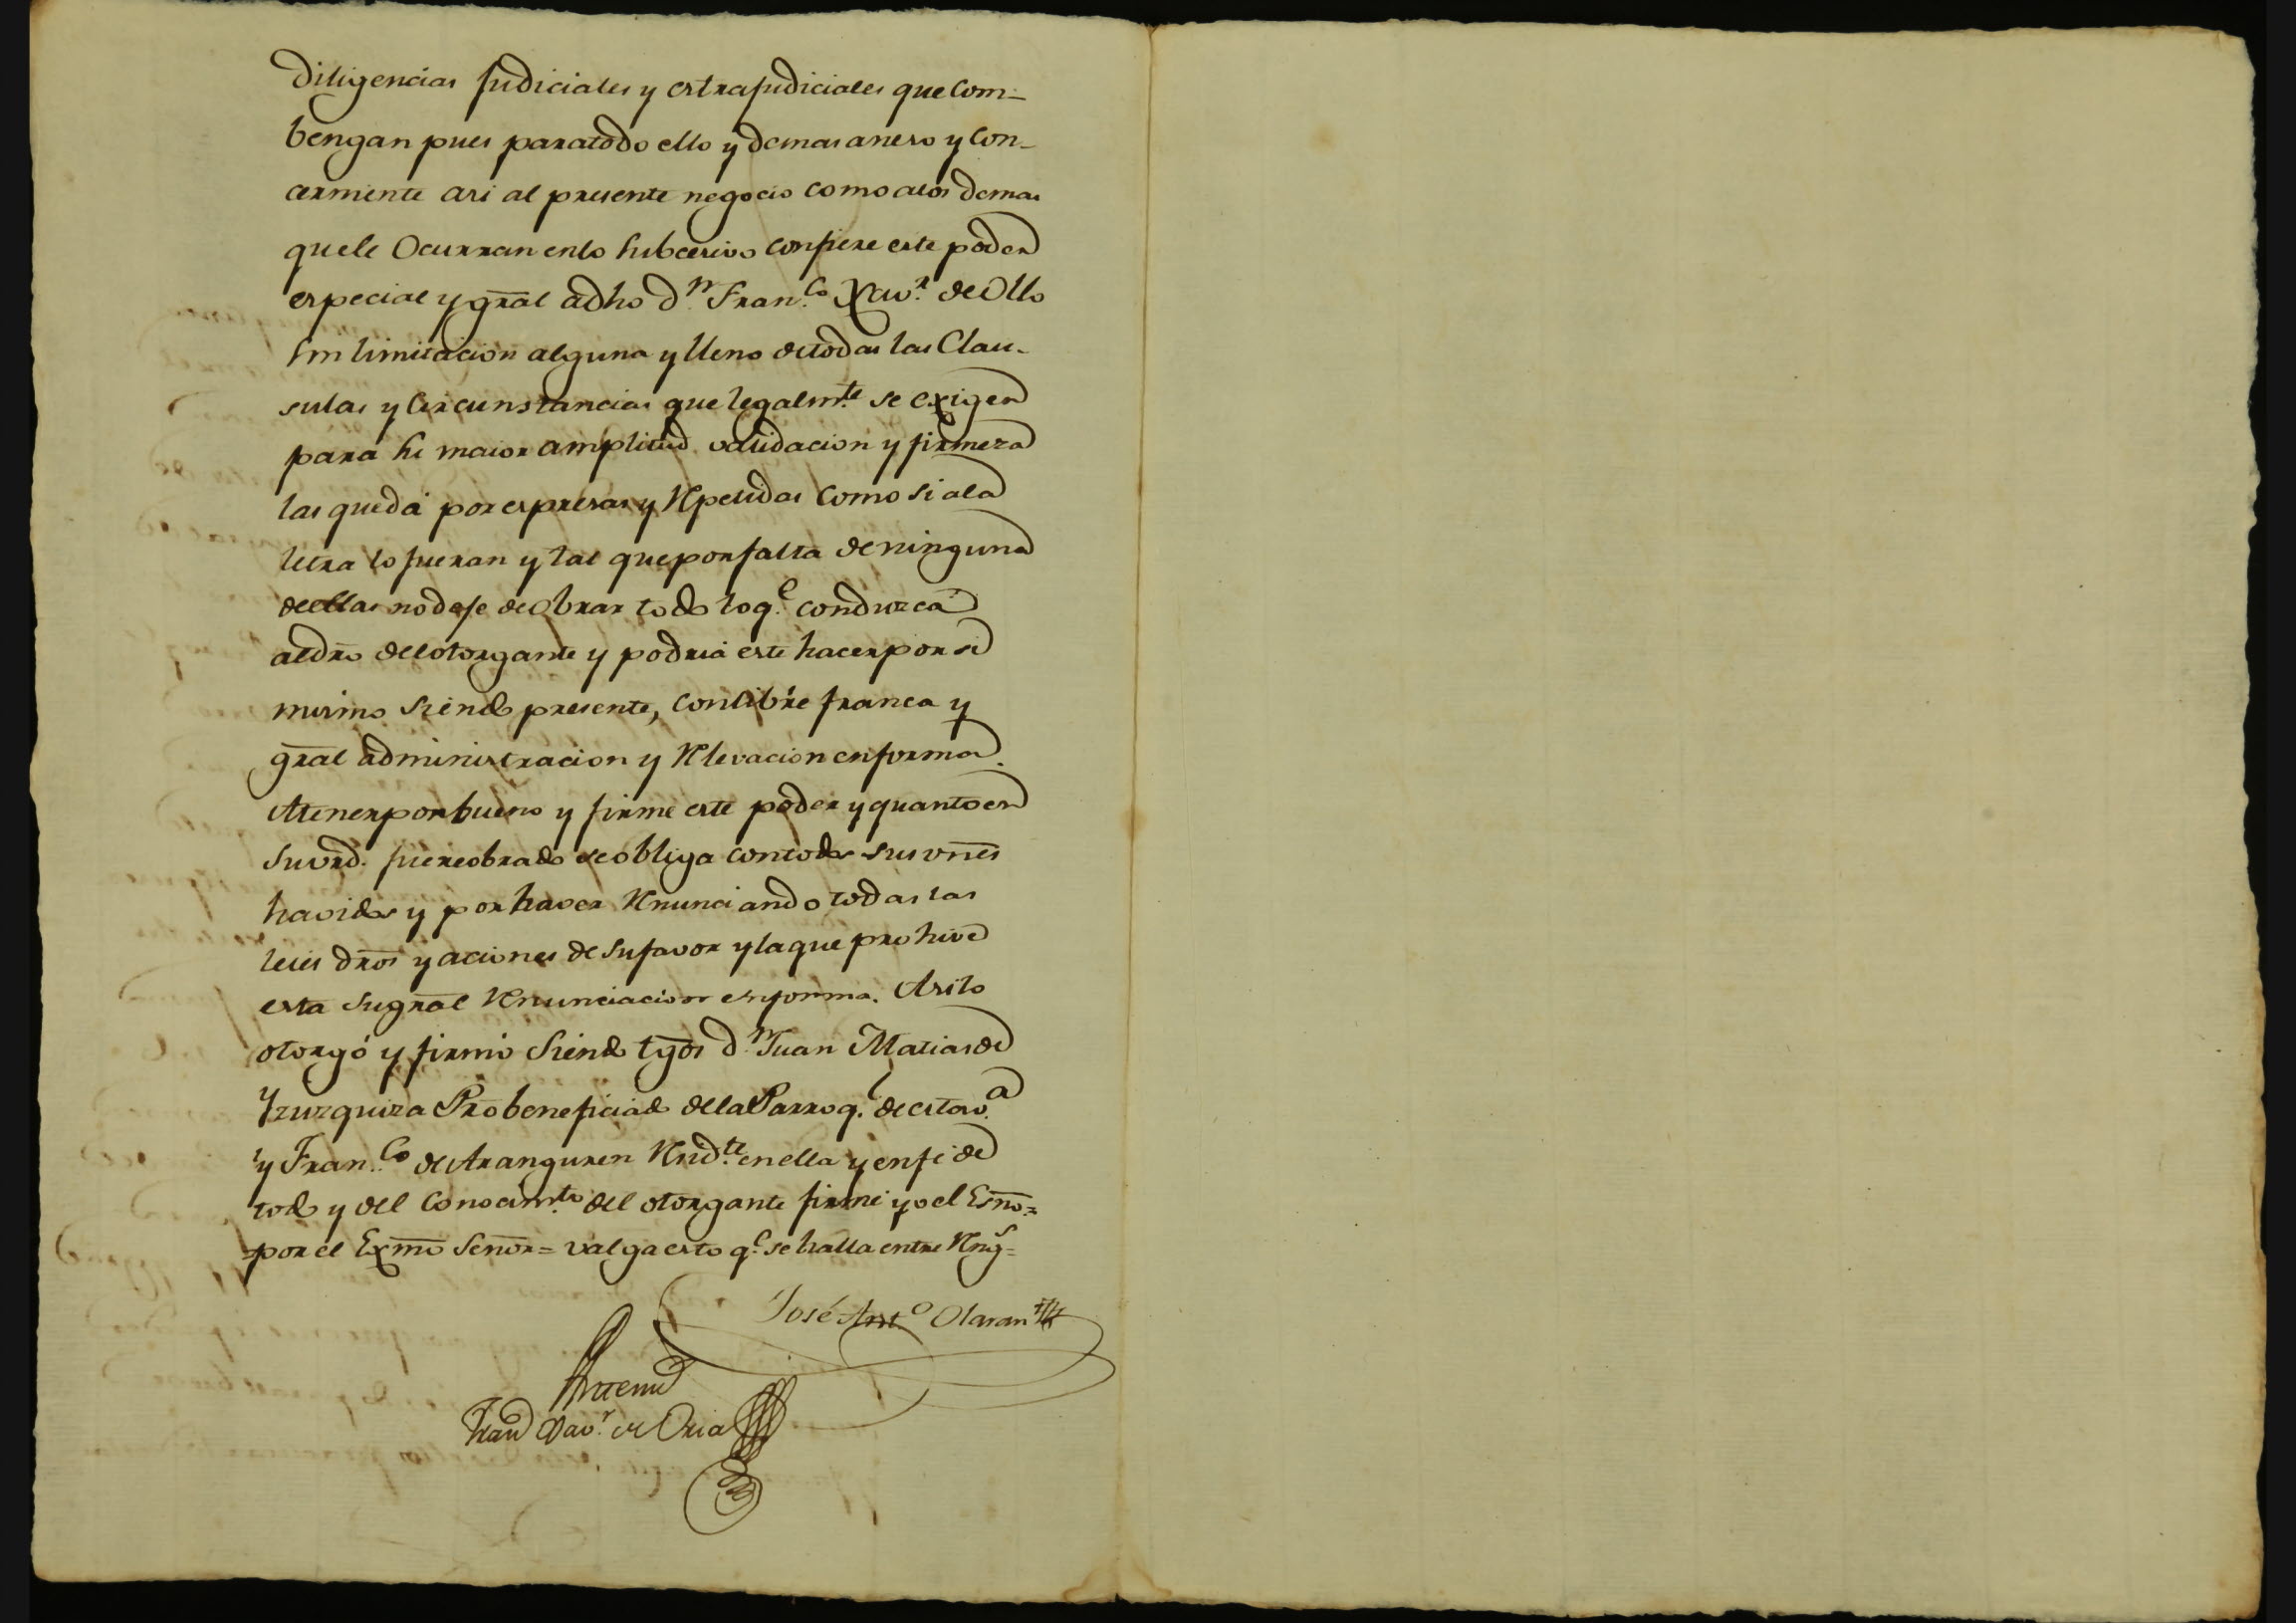 diligencias judiciales y extrajudiciales que com-
bengan pues para todo ello y demas anexo y con-
cerniente asi al presente negocio como a los demas
que le ocurran en lo subcesivo confiere este poder
especial y gral a dho dn Franco Xavr de Ollo
sin limitacion alguna y lleno de todas las Clau-
sulas y circunstancias que legalmte se exigen
para su maior amplitud validacion y firmeza
las que dá por expresas y repetidas como si a la
letra lo fueran y tal que por falta de ninguna
de ellas no deje de obrar todo lo qe conduzca
al dro del otorgante y podria este hacer por si
mismo siendo presente, con libre franca y
gral administracion y relevacion en forma.
A tener por bueno y firme este poder y quanto en
su vrd. fuere obrado se obliga con todos sus vnes
havidos y por haver renunciando todas las
leies dros y aciones de su favor y la que prohive
esta su gral renunciacion en forma. Asi lo
otorgó y firmó siendo tgos dn Juan Matias de
Yzuzquiza Pro beneficiado de la Parroql de esta va
y Franco de Aranguren resdte en ella y en fe de
todo y del conocimto del otorgante firmé yo el Esno=
=por el Exmo Señor= valga esto qe se halla entre rengs=
José Anto Olaran
Ante mi
Xavr de Oria